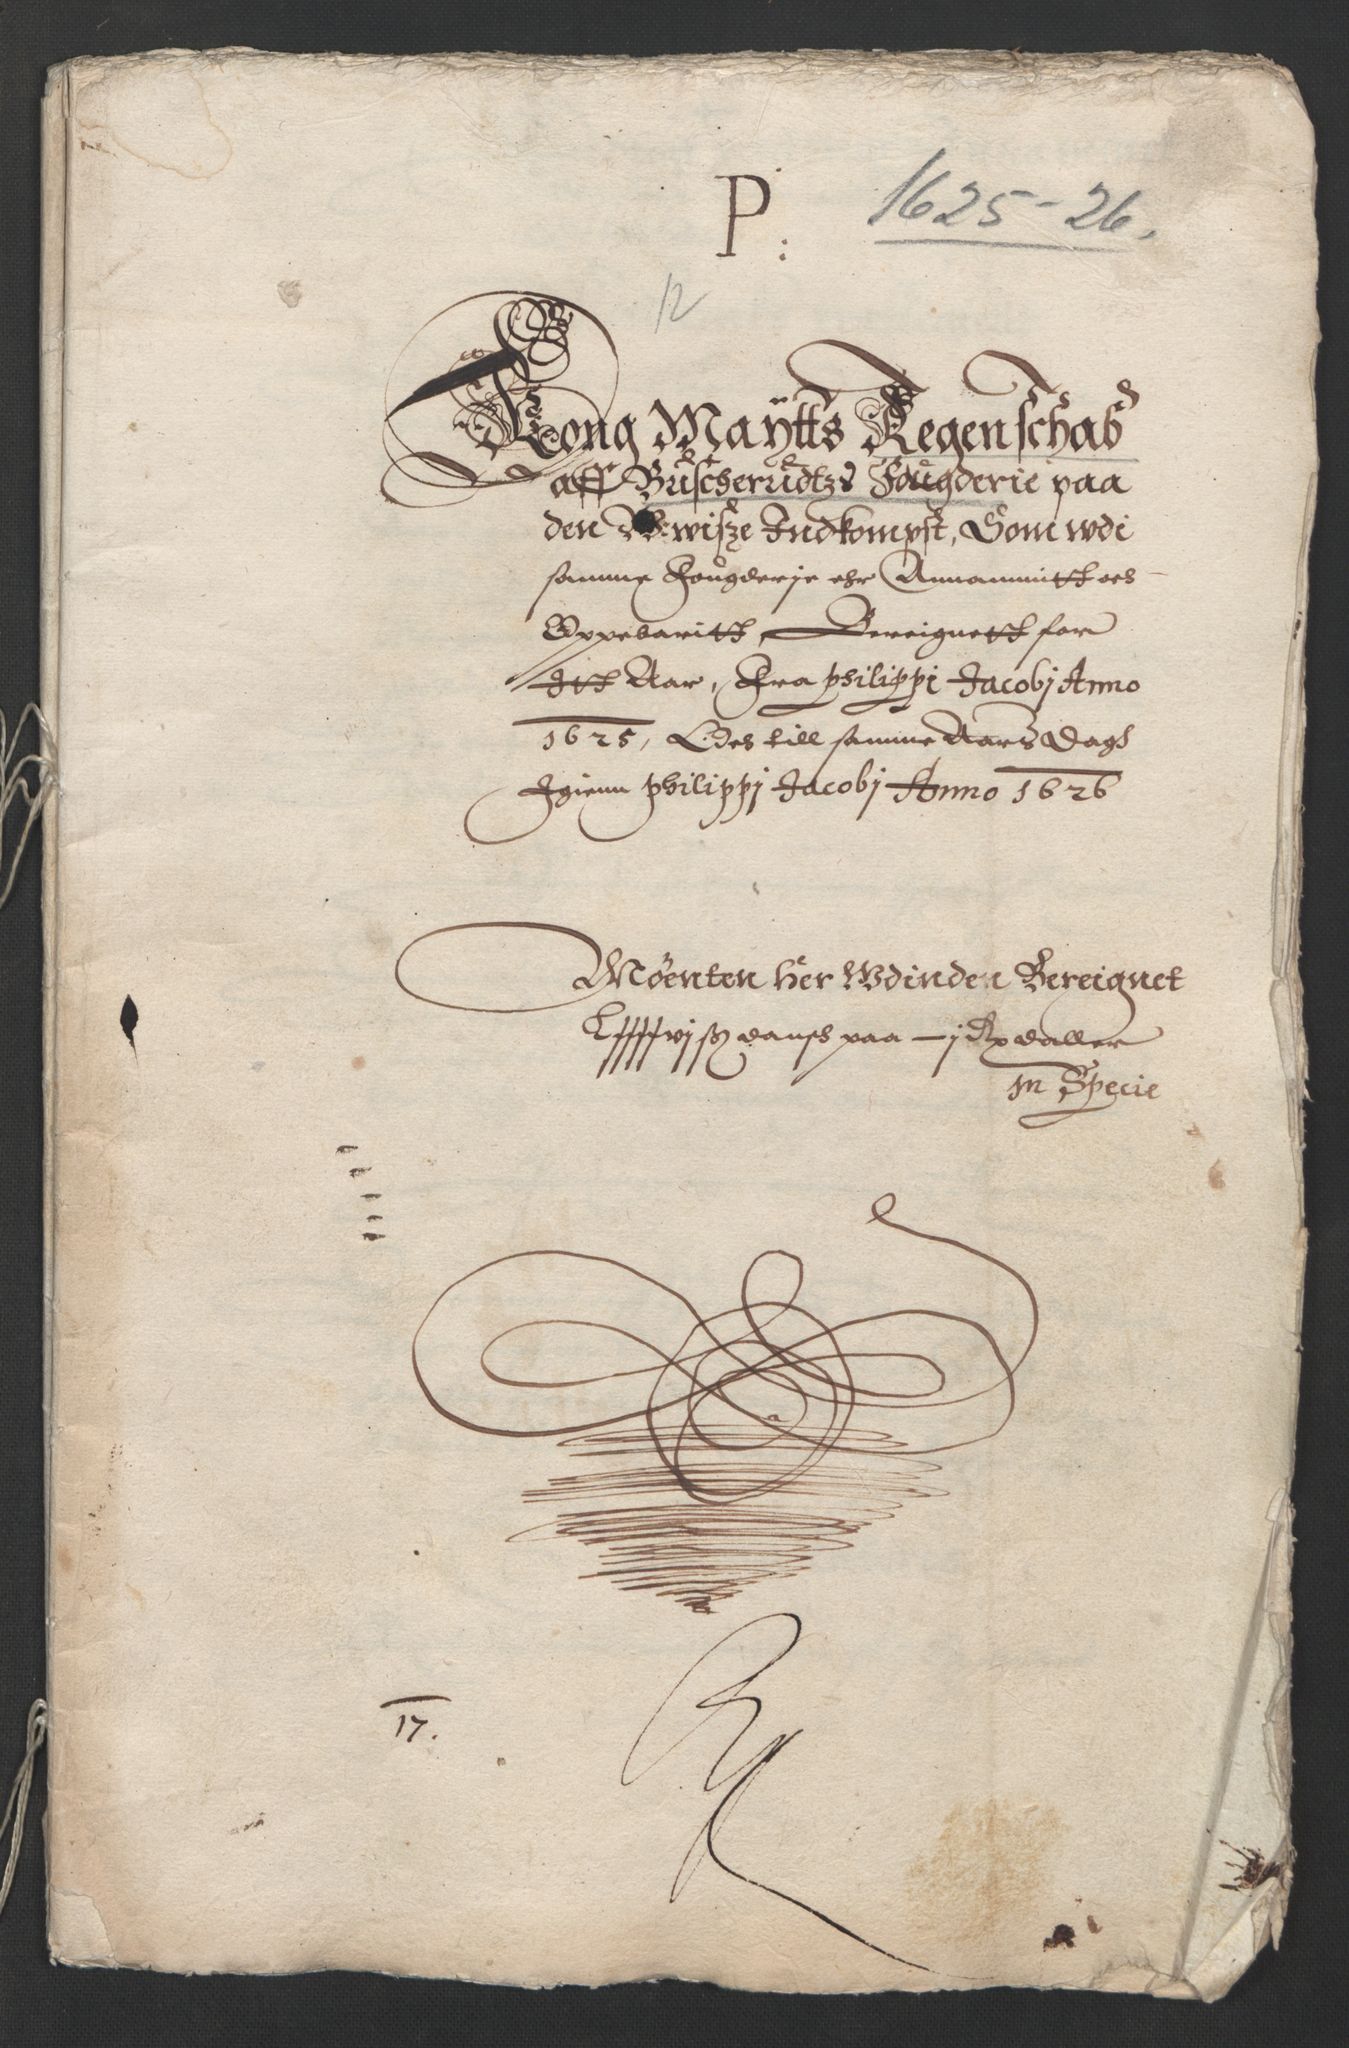 P:
1625-26.
12
Kong Maÿtts Regenschab
aff Buscherudtz Fougderie paa
den Wwisze Indkompst, Som wdi
samme Fougderje ehr Annammitt och
Oppebaritt, Bereignett for
Itt Aar, Fra philippi Jacobj Anno
1625, Och till samme Aars Dagh
Igienn philippj Jacobj Anno 1626
Möenten her Wdinden Bereignet
paa j Rx daller
In Specie
17.